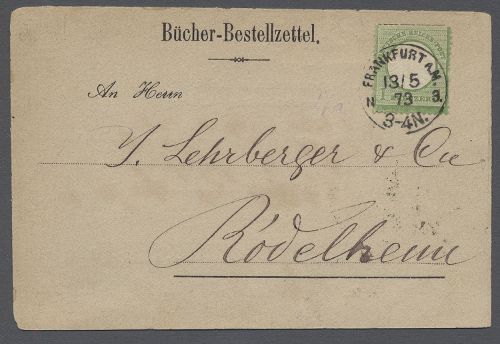 Bücher-Bestellzettel.
FRANKFURT A.M.
13/5
73
3-4N.
An Herrn
J. Lehrberger & Cie
Rödelheim